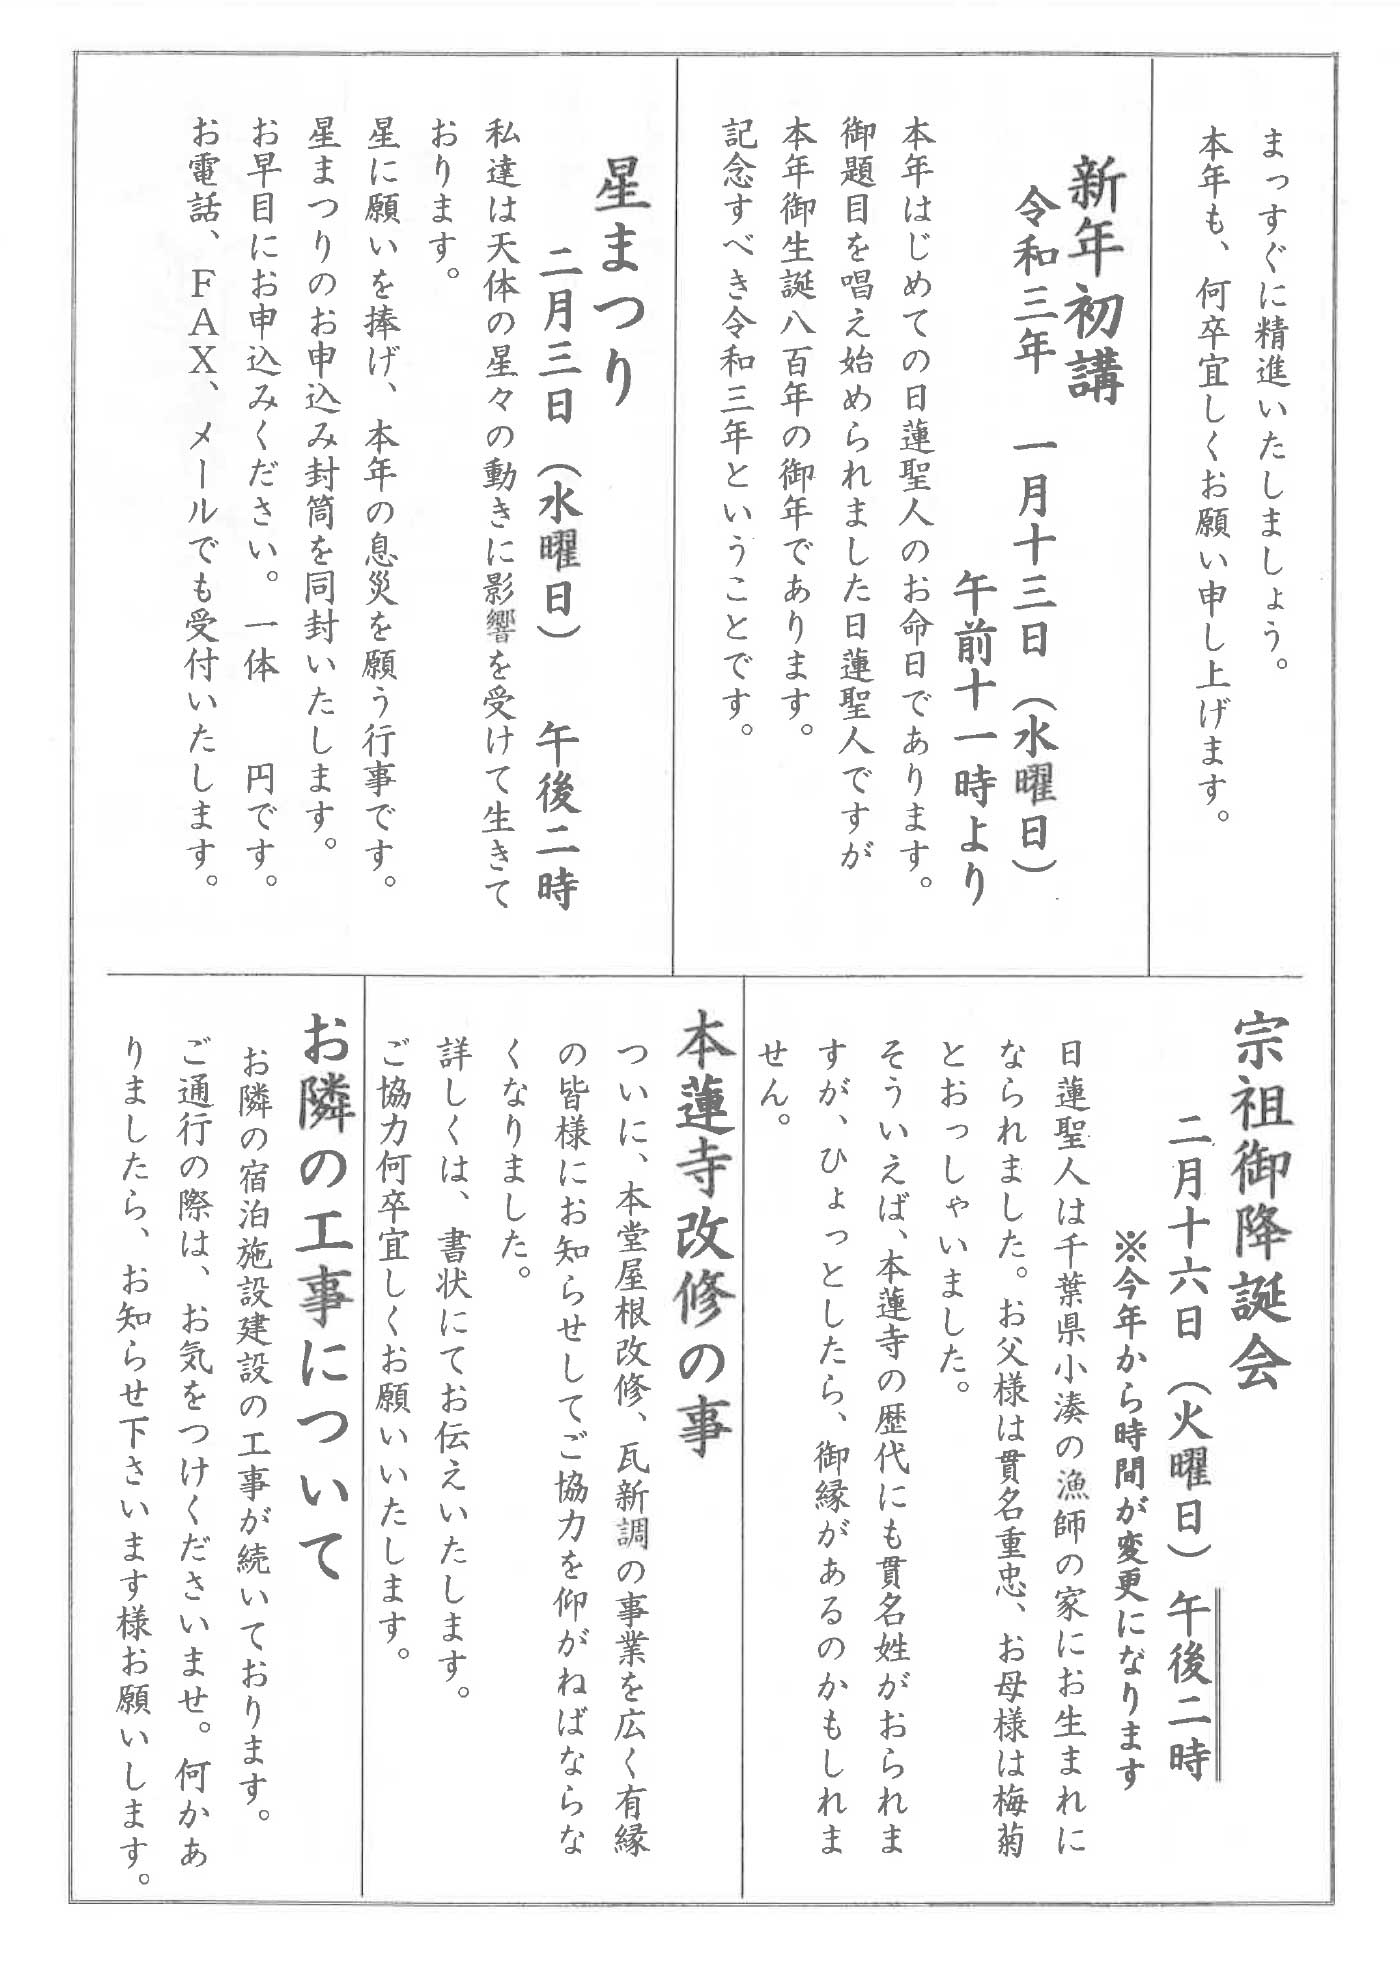 まっすぐに精進いたしましょう。
本年も、何卒宜しくお願い申し上げます。
新年初講
令和三年　一月十三日（水曜日）
午前十一時より
本年はじめての日蓮聖人のお命日であります。
御題目を唱え始められました日蓮聖人ですが
本年御生誕八百年の御年であります。
記念すべき令和三年ということです。
星まつり
二月三日（水曜日）　午後二時
私達は天体の星々の動きに影響を受けて生きて
おります。
星に願いを捧げ、本年の息災を願う行事です。
星まつりのお申込み封筒を同封いたします。
お早目にお申込みください。一体　　円です。
お電話、ＦＡＸ、メールでも受付いたします。
宗祖御降誕会
二月十六日（火曜日）午後二時
※今年から時間が変更になります
日蓮聖人は千葉県小湊の漁師の家にお生まれに
なられました。お父様は貫名重忠、お母様は梅菊
とおっしゃいました。
そういえば、本蓮寺の歴代にも貫名姓がおられま
すが、ひょっとしたら、御縁があるのかもしれま
せん。
本蓮寺改修の事
ついに、本堂屋根改修、瓦新調の事業を広く有縁
の皆様にお知らせしてご協力を仰がねばならな
くなりました。
詳しくは、書状にてお伝えいたします。
ご協力何卒宜しくお願いいたします。
お隣の工事について
お隣の宿泊施設建設の工事が続いております。
ご通行の際は、お気をつけくださいませ。何かあ
りましたら、お知らせ下さいます様お願いします。